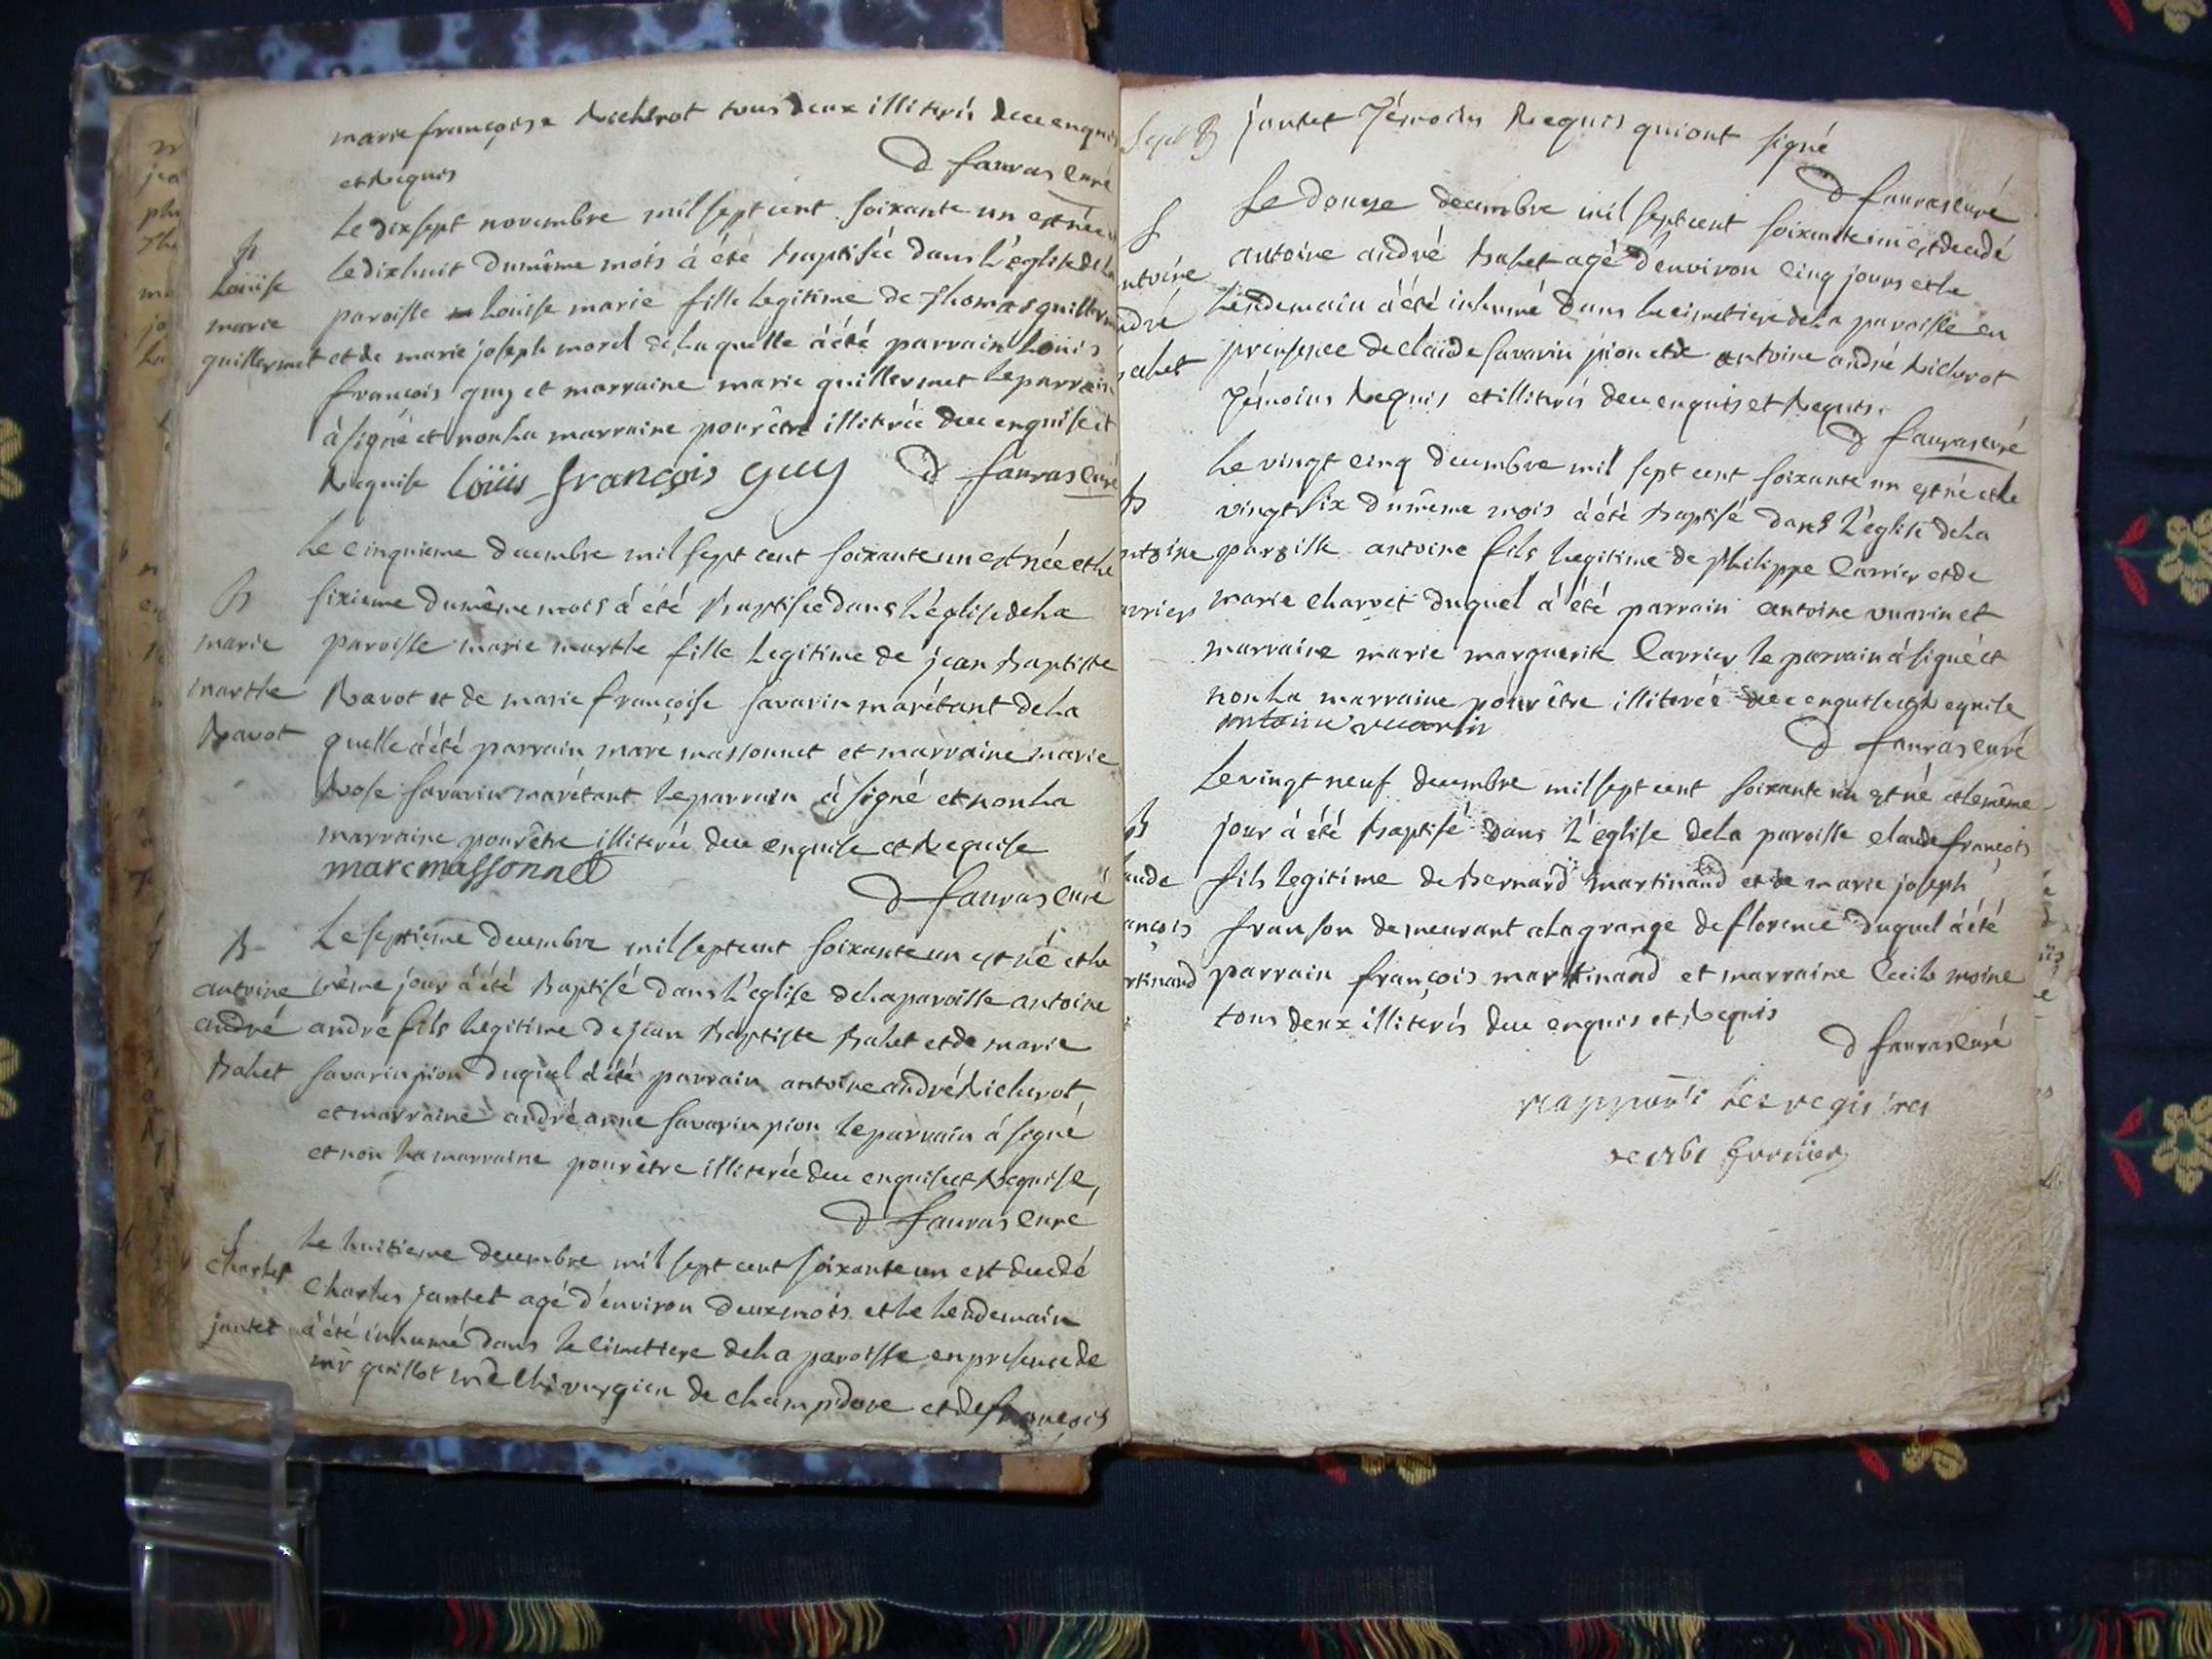 marie françoise Richerot tous deux illiterés deue enquis
et Requis
D fauvas Curé
Le dix sept novembre mil sept cent soixante un est née et
B
Louise
marie
guillermet
Le dix huit du même mois á été Baptisée dans L'église de La
paroisse Louise marie fille Legitime de Thomas guillermet
et de marie joseph morel de La quelle á été parrain Louis
françois guy et marraine marie guillermet Le parrain
á signé et non La marraine pour être illiterée deue enquise et
Requise Loüis françois guy D fauvas Curé
Le cinquieme decembre mil sept cent soixante un est née et Le
B
marie
marthe
Ravot
sixieme du même mois á été Baptisée dans L'église de La
paroisse marie marthe fille Legitime de jean Baptiste
Ravot et de marie françoise savarin marétant de La
quelle á été parrain marc massonnet et marraine marie
Rose savarin marétant Le parrain á signé et non La
marraine pour être illiterée deue enquise et Requise
marc massonnet
D fauvas Curé
B
antoine
andré
Bahet
Le septieme decembre mil sept cent soixante un est né et Le
même jour á été Baptisé dans L'église de La paroisse antoine
andré fils Legitime de jean Baptiste Bahet et de marie
savarin pion duquel á été parrain antoine andré Richerot
et marraine andréanne savarin pion Le parrain á signé
et non La marraine pour être illiterée deue enquise et Requise,
D fauvas Curé
S
Charles
jantet
Le huitieme decembre mil sept cent soixante un est decedé
Charles jantet agé d'environ deux mois et Le Lendemain
á été inhumé dans Le Cimetiere de La paroisse en presence de
mr guillot me Chirurgien de champdore et de françois
jantet Témoins Requis qui ont signé
D fauvas curé
S
ntoine
ndré
ahet
Le douze decembre mil sept cent soixante un est decedé
antoine andré Bahet agé d'environ Cinq jours et Le
Lendemain á été inhumé dans Le Cimetiere de La paroisse en
presence de claude savarin pion et de antoine andré Richerot
Témoins Requis et illiterés deue enquis et Requis.
D fauvas curé
B
ntoine
arrier
Le vingt cinq decembre mil sept cent soixante un est né et Le
vingt six du même mois á été Baptisé dans L'église de La
paroisse antoine fils Legitime de philippe Carrier et de
marie charvet duquel á été parrain antoine vuarin et
marraine marie marguerite Carrier Le parrain á signé et
non La marraine pour être illiterée deue enquise et Requise
antoine vuarin
D fauvas curé
B
aude
ançois
rtinand
Le vingt neuf decembre mil sept cent soixante un est né et Le même
jour á été Baptisé dans L'église de La paroisse claude françois
fils Legitime de Bernard martinand et de marie joseph
franson demeurant a La grange de florence duquel á été
parrain françois martinand et marraine Cecile moine
tous deux illiterés deue enquis et Requis
D fauvas Curé